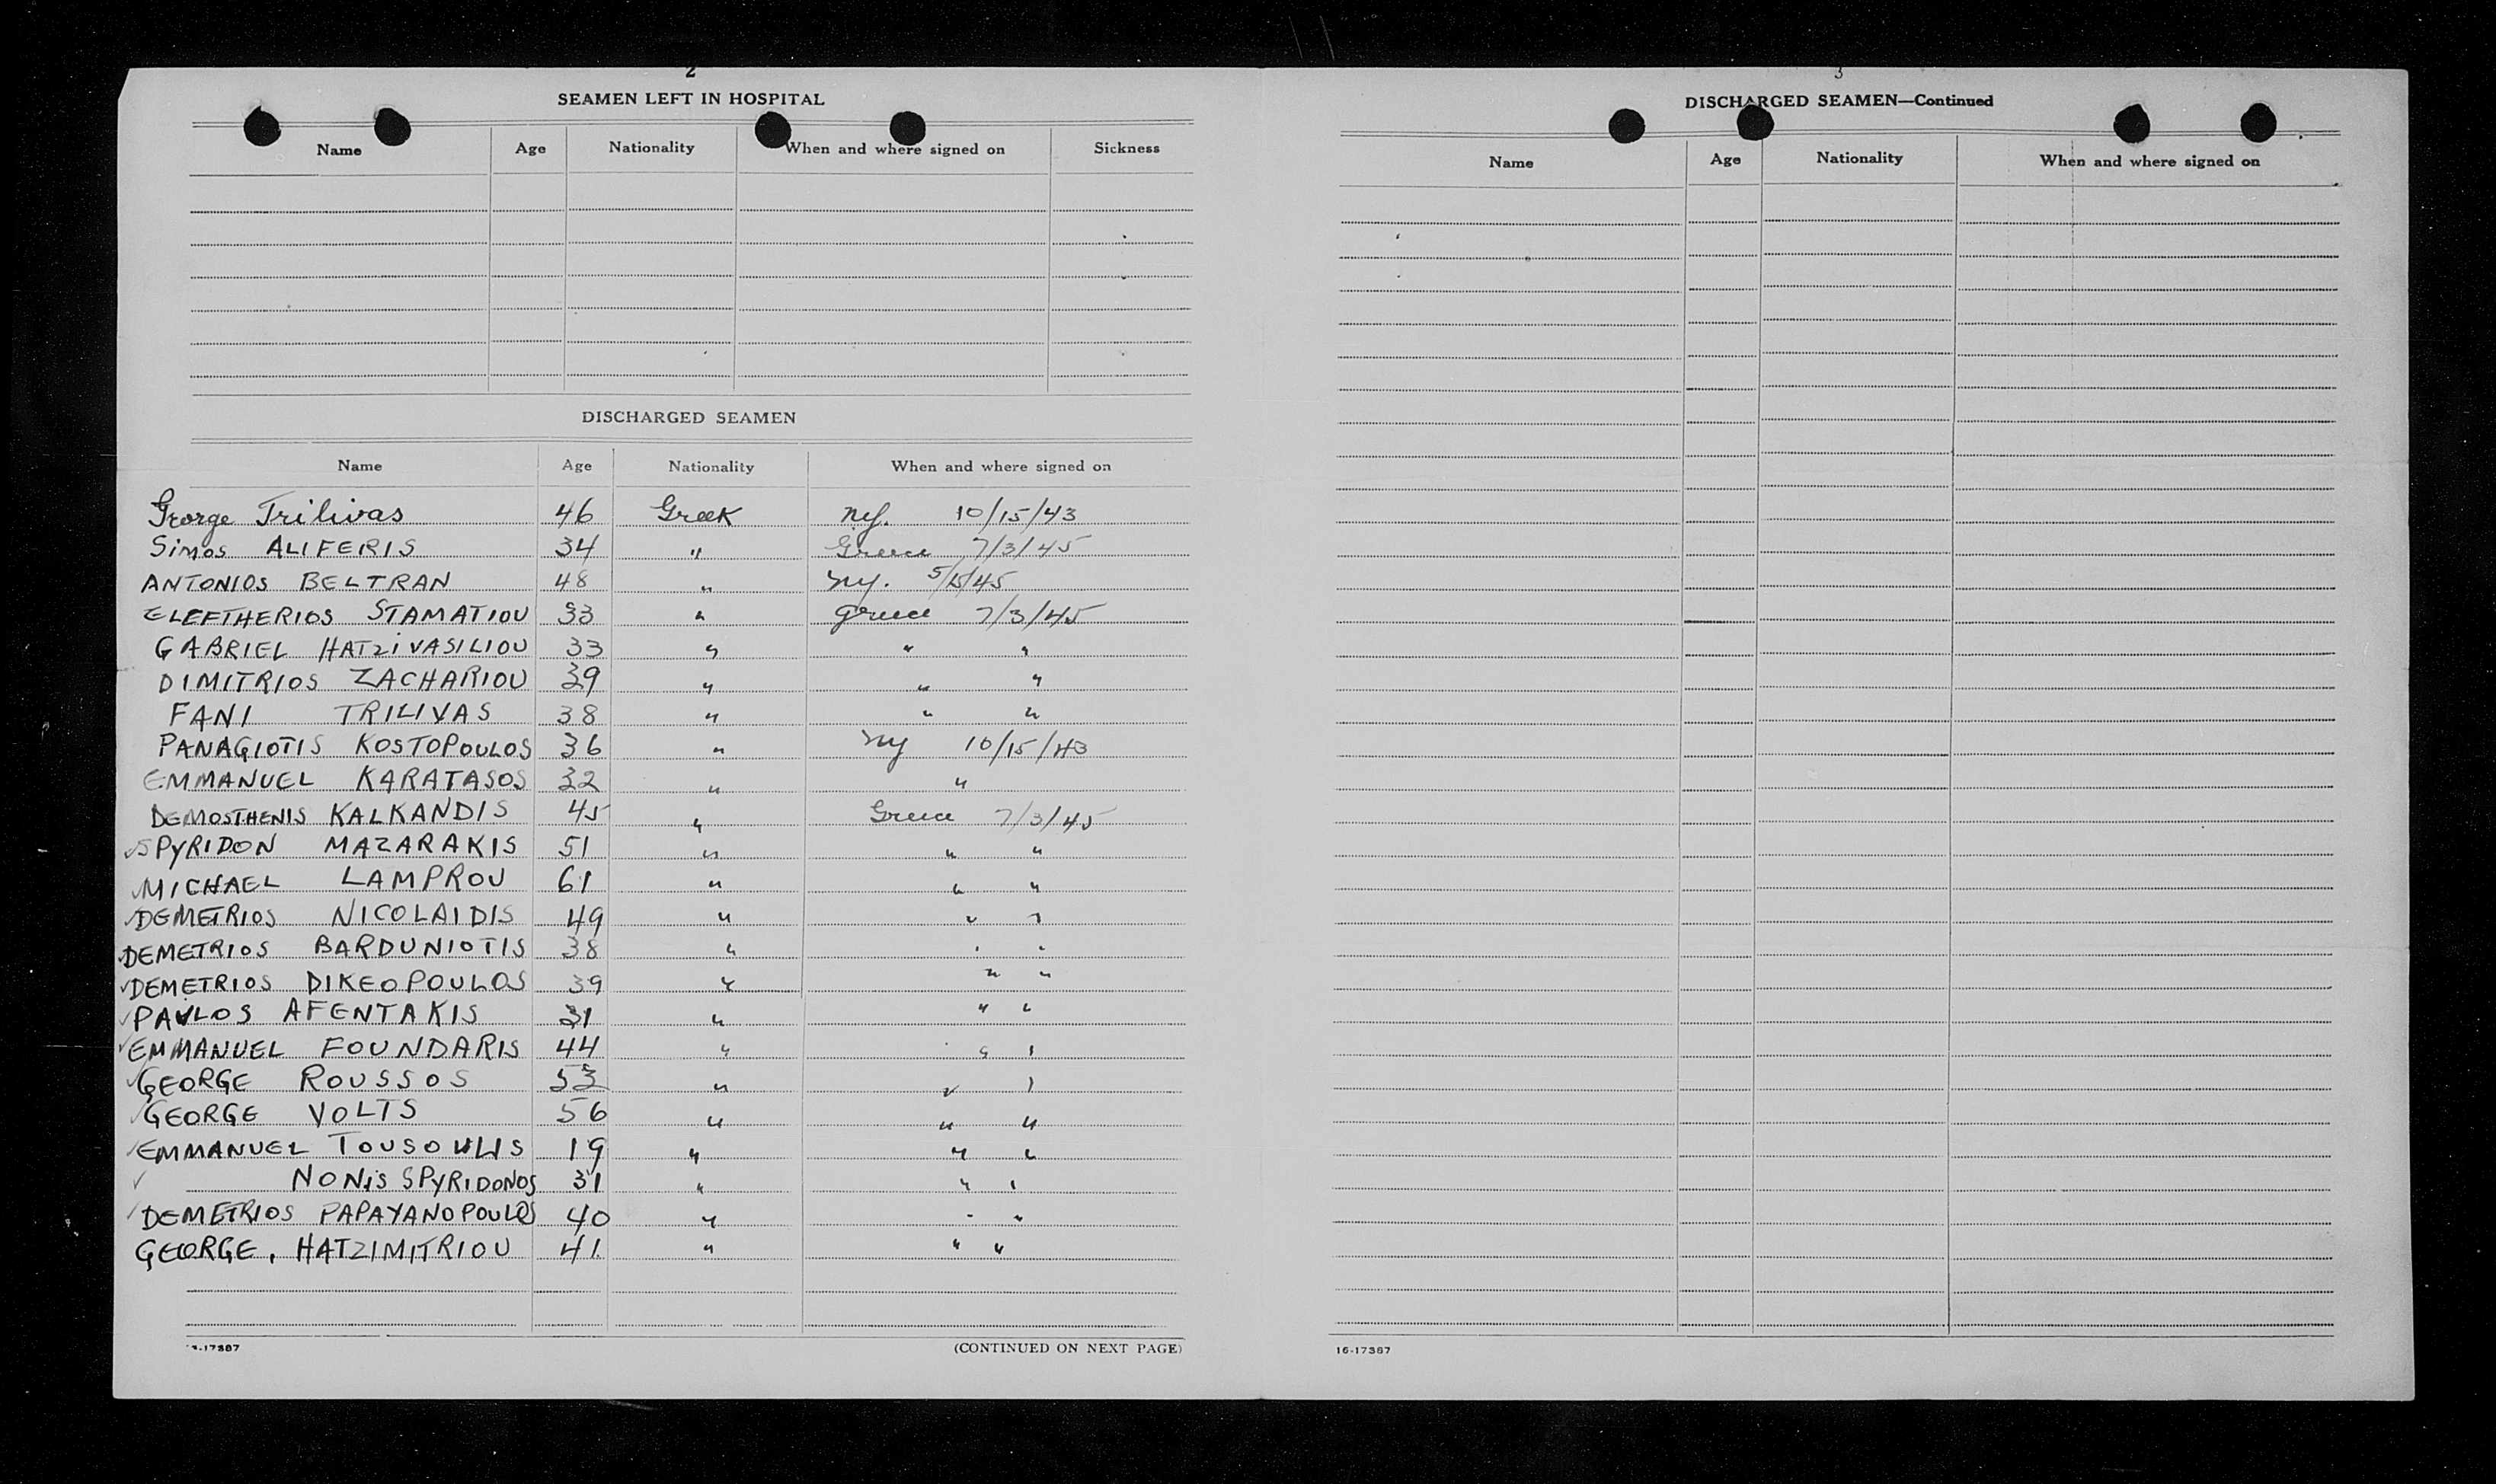 2
SEAMEN LEFT IN HOSPITAL
Name Age Nationality When and where signed on Sickness
DISCHARGED SEAMEN
Name Age Nationality When and where signed on
George Trilivas 46 Greek Ny. 10/15/43
Simos ALIFERIS 34 " Greece 7/3/45
ANTONIOS BELTRAN 48 " Ny. 5/5/45
ELEFTHERIOS STAMATIOU 33 " Greece 7/3/45
GABRIEL HATZIVASILIOU 33 " " "
DIMITRIOS ZACHARIOU 39 " " "
FANI TRILIVAS 38 " " "
PANAGIOTIS KOSTOPOULOS 36 " Ny 10/15/43
EMMANUEL KARATASOS 32 " "
DEMOSTHENIS KALKANDIS 45 " Greece 7/3/45
✓SPYRIDON MAZARAKIS 51 " " "
✓MICHAEL LAMPROU 61 " " "
✓DEMETRIOS NICOLAIDIS 49 " " "
✓DEMETRIOS BARDUNIOTIS 38 " " "
✓DEMETRIOS DIKEOPOULOS 39 " " "
✓PAVLOS AFENTAKIS 31 " " "
✓EMMANUEL FOUNDARIS 44 " " "
✓GEORGE ROUSSOS 53 " " "
✓GEORGE VOLTS 56 " " "
✓EMMANUEL TOUSOULIS 19 " " "
✓ NONIS SPYRIDONOS 31 " " "
✓DEMETRIOS PAPAYANOPOULOS 40 " " "
GEORGE, HATZIMITRIOU 41 " " "
(CONTINUED ON NEXT PAGE)
3
DISCHARGED SEAMEN—Continued
Name Age Nationality When and where signed on
16-17387